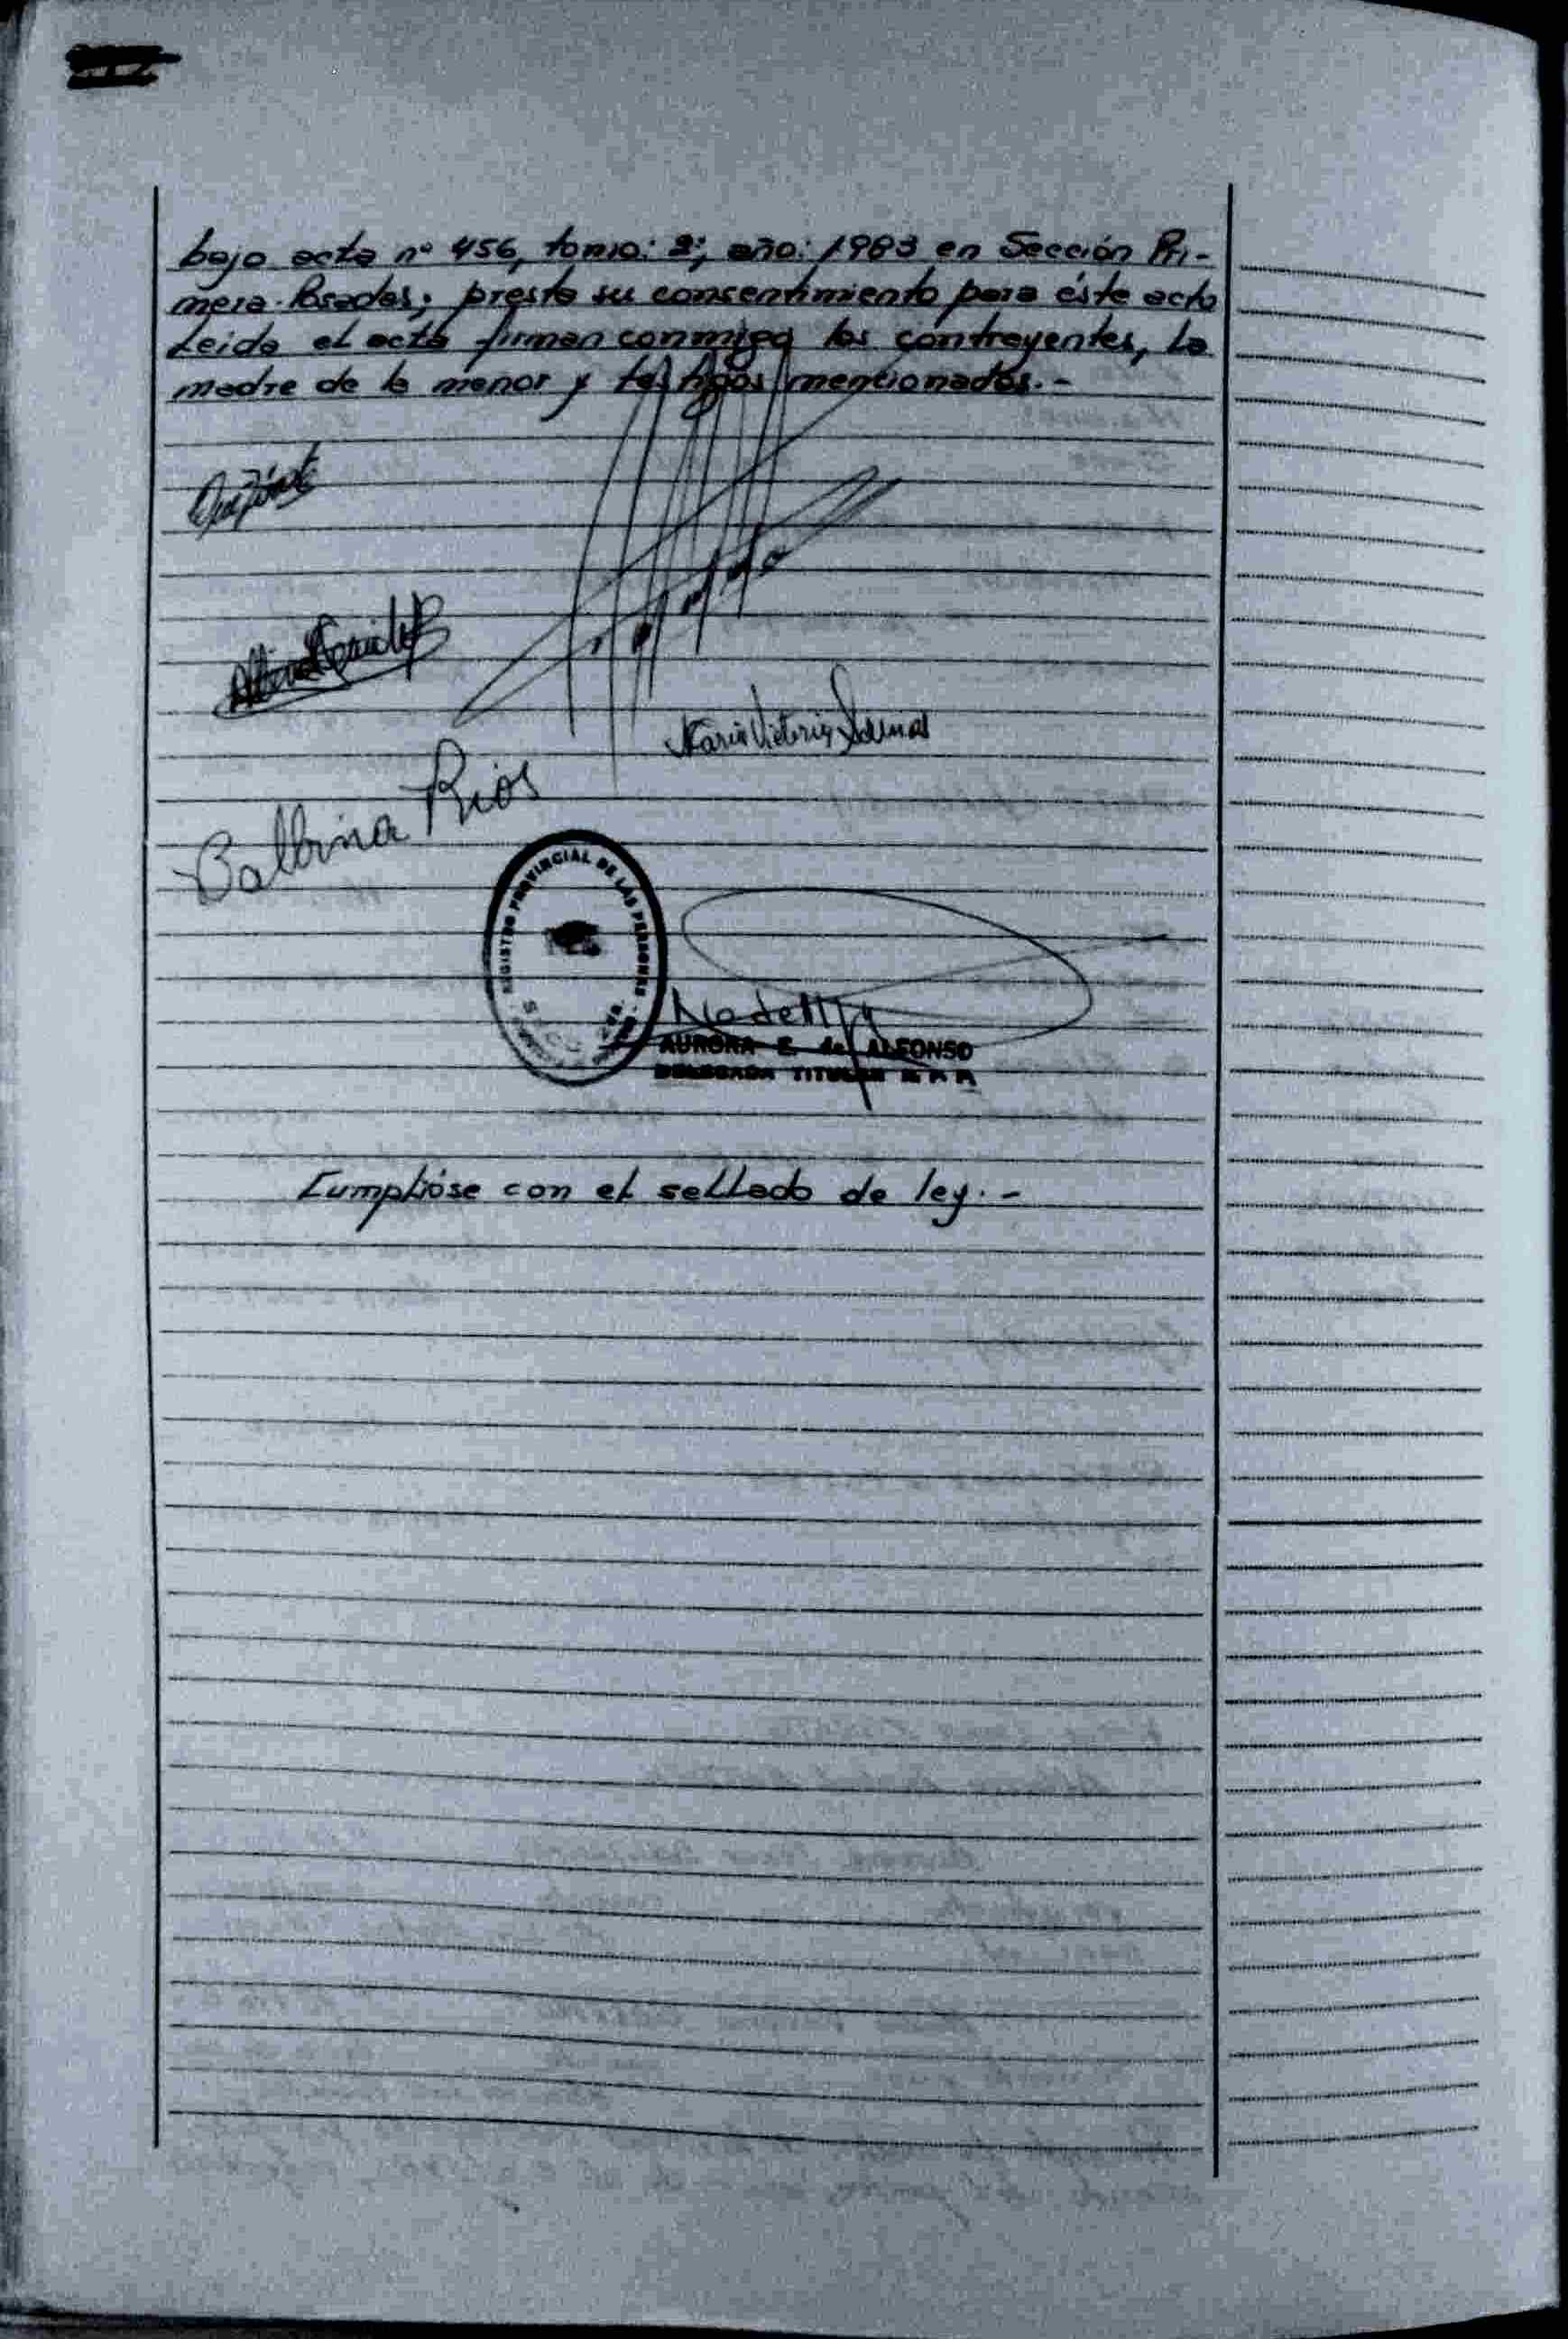 bajo acta nº 456, tomo: 2º, año: 1983 en Sección Pri-
mera-Posadas; presta su consentimiento para éste acto
Leida el acta firman conmigo los contrayentes, La
madre de la menor y testigos mencionados.-
María Victoria
Balbina Rios
REGISTRO PROVINCIAL DE LAS PERSONAS
AURORA E. de ALFONSO
DELEGADA TITULAR R P P
Cumplióse con el sellado de ley.-